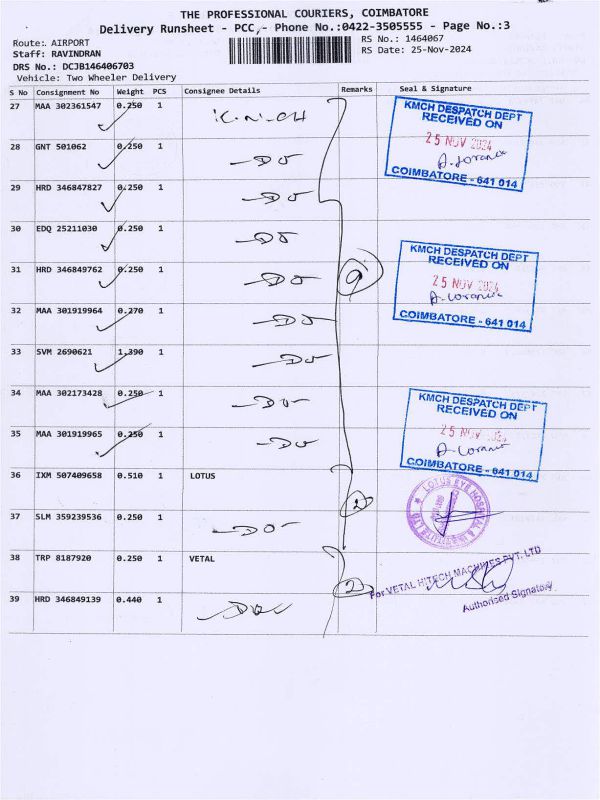 THE PROFESSIONAL COURIERS, COIMBATORE
Delivery Runsheet - PCC,- Phone No.:0422-3505555 - Page No.:3
Route: AIRPORT RS No.: 1464067
Staff: RAVINDRAN RS Date: 25-Nov-2024
DRS No.: DCJB146406703
Vehicle: Two Wheeler Delivery
S No Consignment No Weight PCS Consignee Details Remarks Seal & Signature
27 MAA 302361547 0.250 1 K.M.CH
28 GNT 501062 0.250 1 -DO-
29 HRD 346847827 0.250 1 -DO-
KMCH DESPATCH DEPT
RECEIVED ON
25 NOV 2024
COIMBATORE - 641 014
30 EDQ 25211030 0.250 1 -DO-
31 HRD 346849762 0.250 1 -DO- 9
32 MAA 301919964 0.270 1 -DO-
KMCH DESPATCH DEPT
RECEIVED ON
25 NOV 2024
COIMBATORE - 641 014
33 SVM 2690621 1.390 1 -DO-
34 MAA 302173428 0.250 1 -DO-
35 MAA 301919965 0.250 1 -DO-
KMCH DESPATCH DEPT
RECEIVED ON
25 NOV
COIMBATORE - 641 014
36 IXM 507409658 0.510 1 LOTUS 2
37 SLM 359239536 0.250 1 -DO-
LOTUS EYE HOSPITAL & INSTITUTE LTD
38 TRP 8187920 0.250 1 VETAL 2
39 HRD 346849139 0.440 1 -DO-
For VETAL HITECH MACHINES PVT. LTD
Authorised Signatory